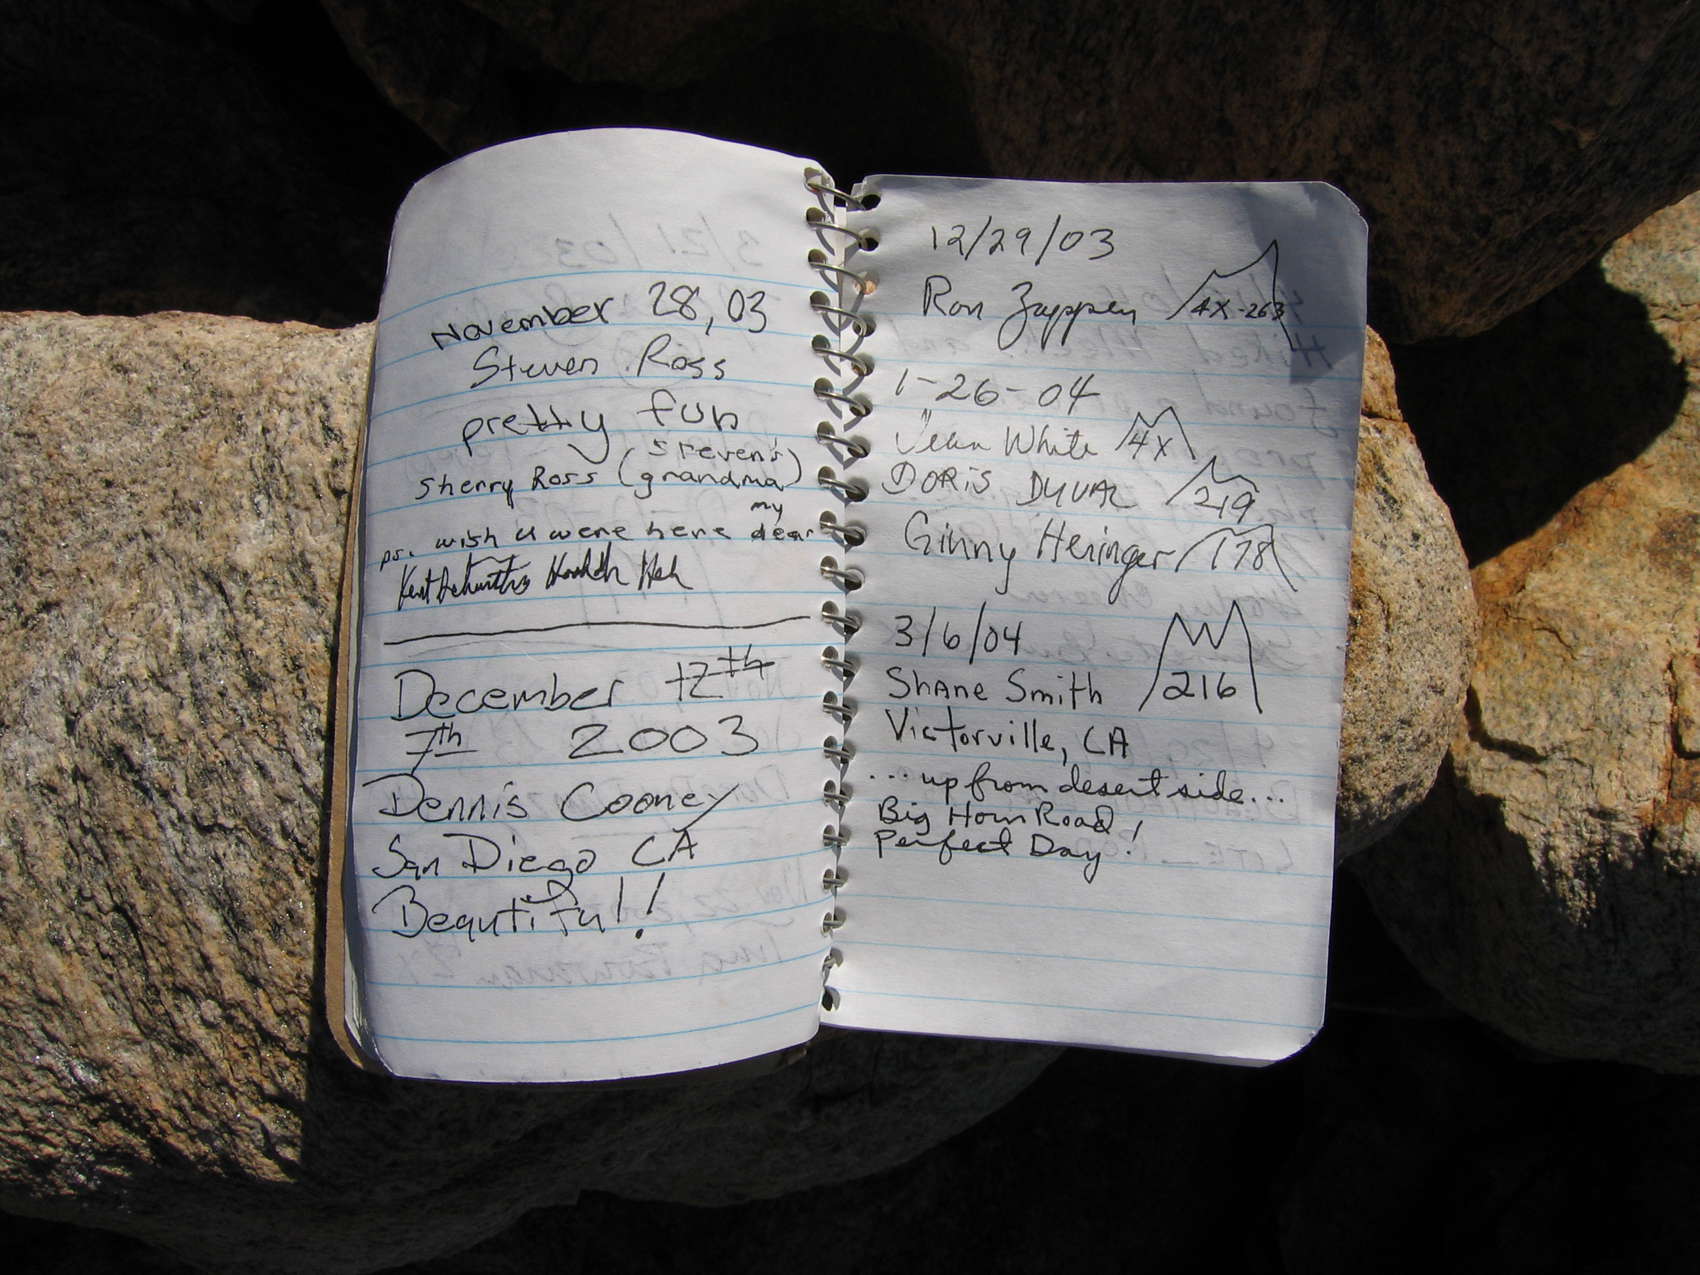 November 28, 03
Steven Ross
pretty fun
Sherry Ross (Steven's grandma)
ps. wish u were here my dear
December 12th
7th 2003
Dennis Cooney
San Diego CA
Beautiful!!
12/29/03
Ron Zappen 4X-263
1-26-04
Jean White 4X
DORIS DUVAL 219
Ginny Heringer 178
3/6/04
Shane Smith 216
Victorville, CA
...up from desert side...
Big Horn Road!
Perfect Day!